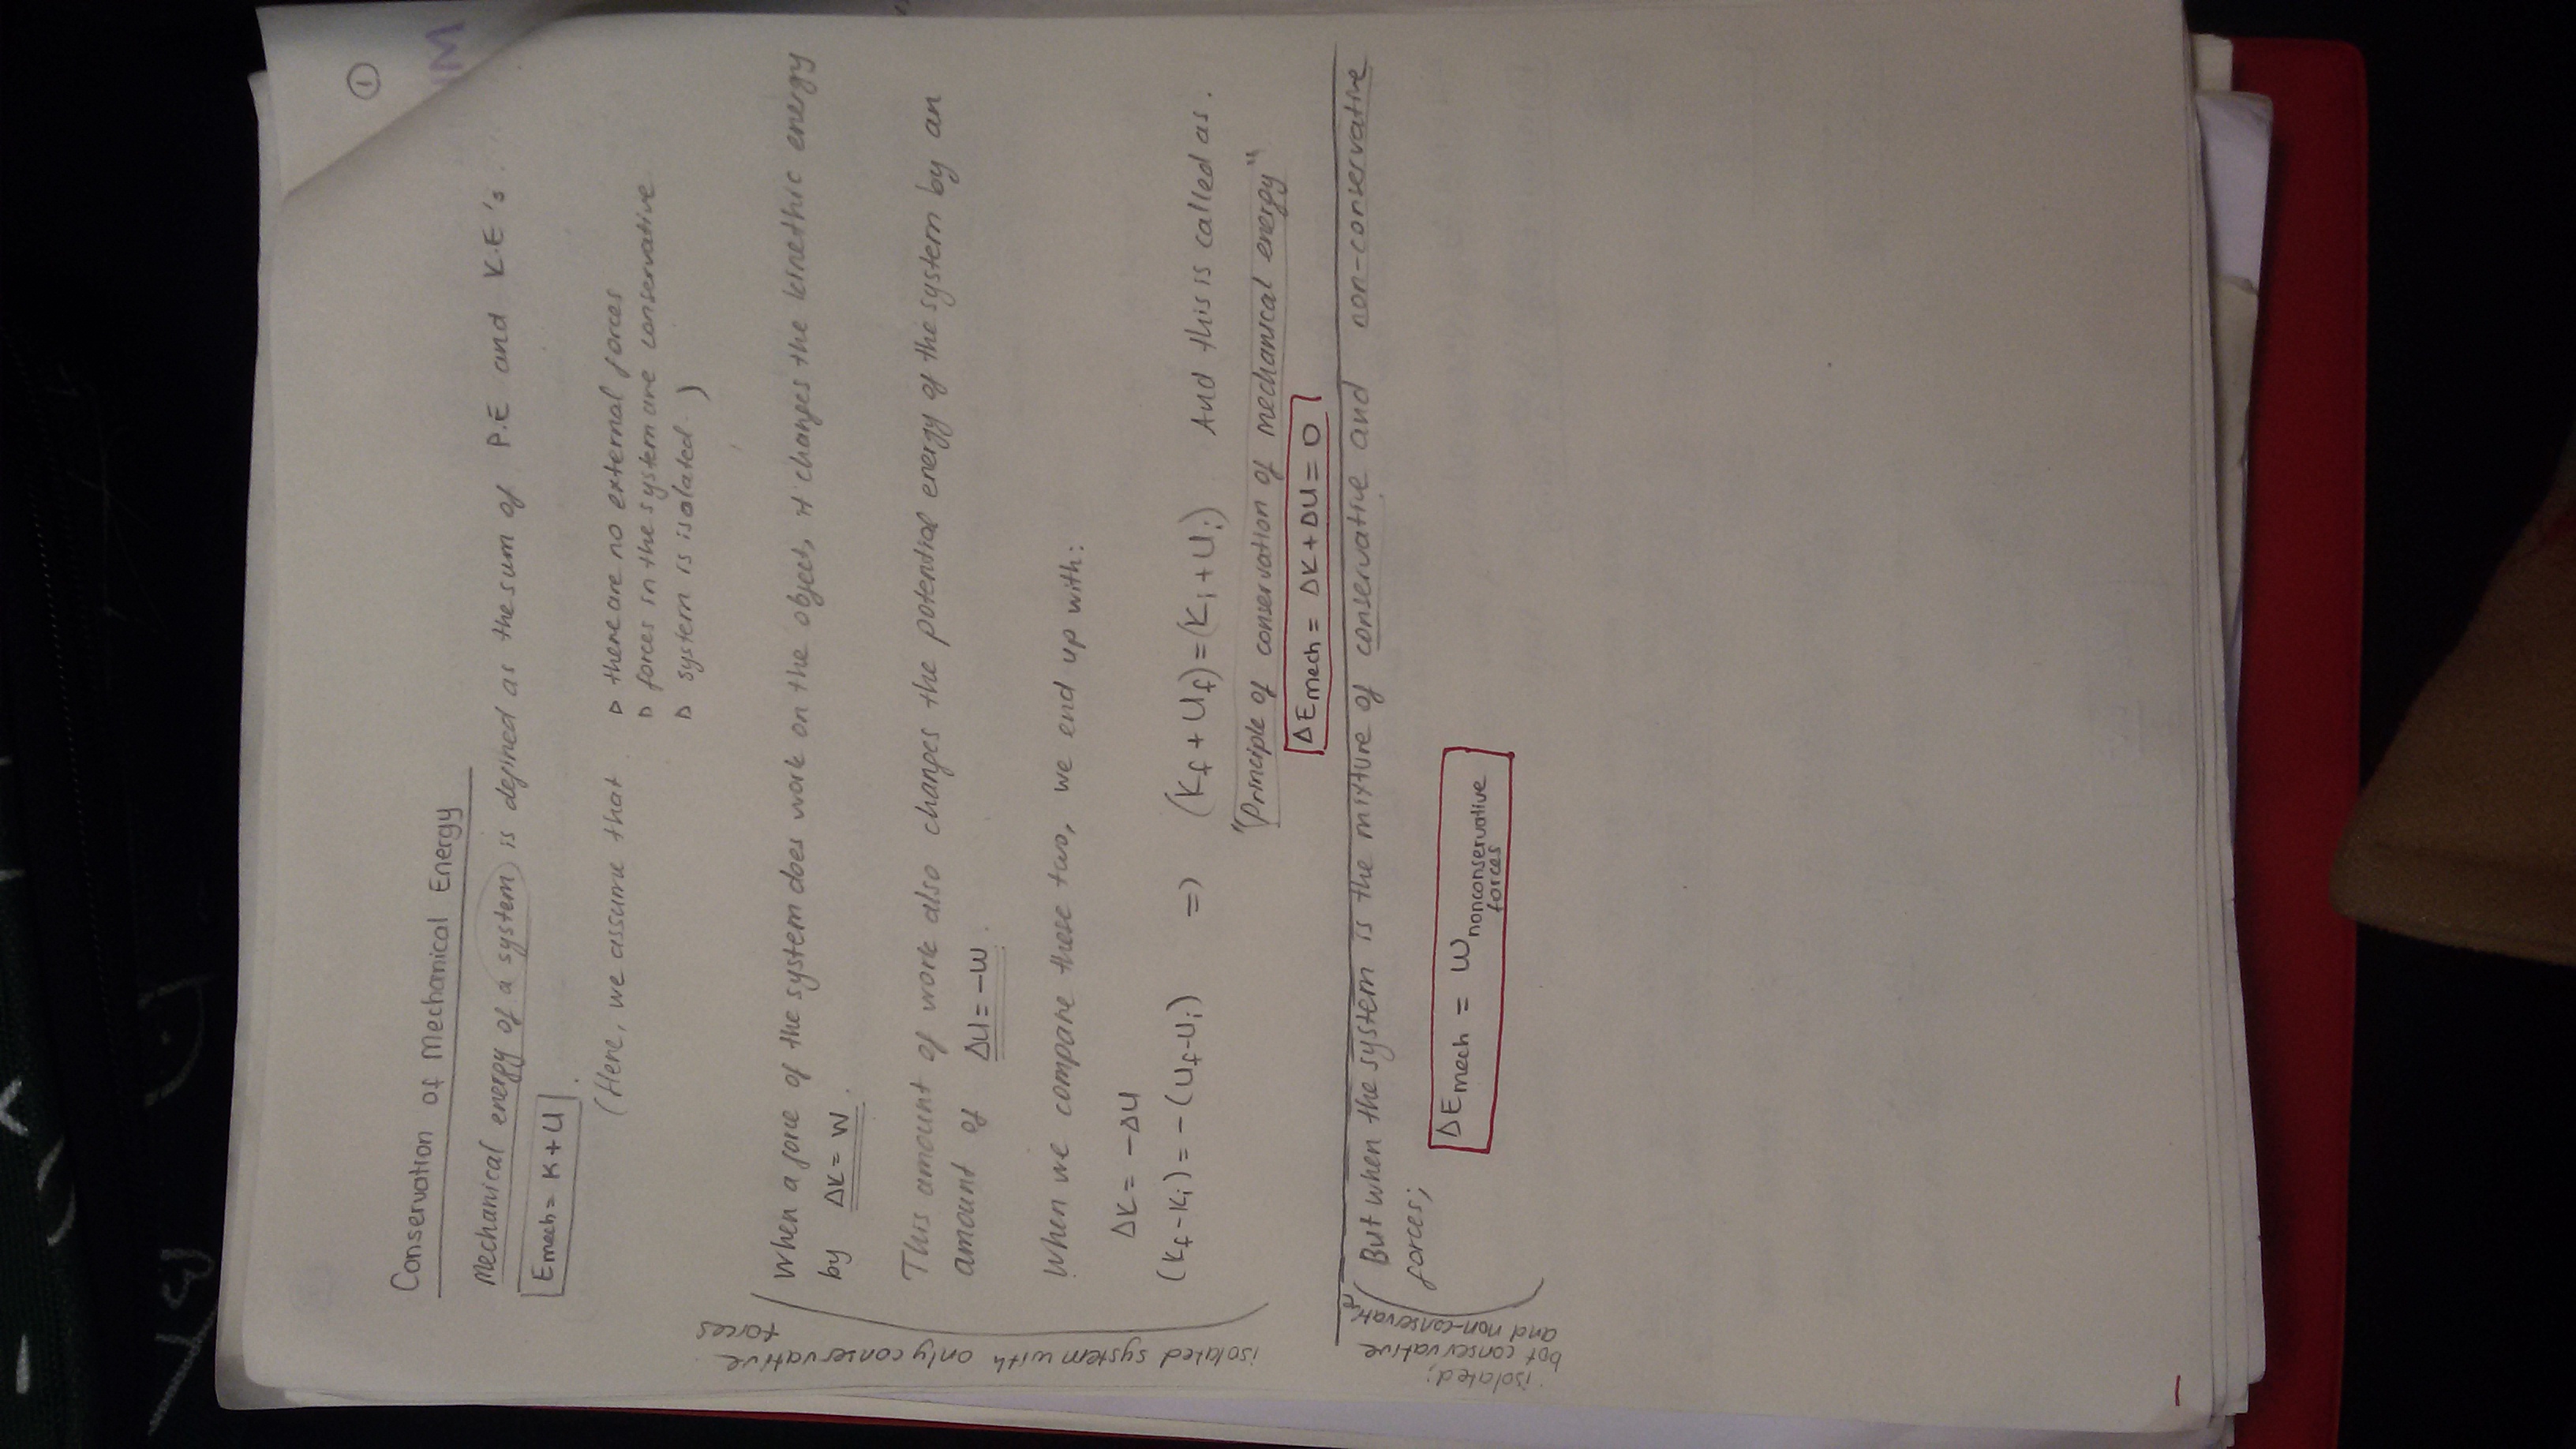 ①
Conservation of Mechanical Energy
Mechanical energy of a system is defined as the sum of P.E and K.E's.
Emech = K+U
(Here, we assume that ▷ there are no external forces
▷ forces in the system are conservative
▷ system is isolated. )
isolated system with only conservative
forces
When a force of the system does work on the object, it changes the kinethic energy
by ΔK = W.
This amount of work also changes the potential energy of the system by an
amount of ΔU = -W.
When we compare these two, we end up with:
ΔK = -ΔU
(Kf-Ki) = -(Uf-Ui) => (Kf+Uf)=(Ki+Ui) And this is called as.
"Principle of conservation of mechanical energy"
ΔEmech = ΔK+ΔU = 0
isolated;
bot conservative
and non-conservative
But when the system is the mixture of conservative and non-conservative
forces;
ΔEmech = W nonconservative
forces